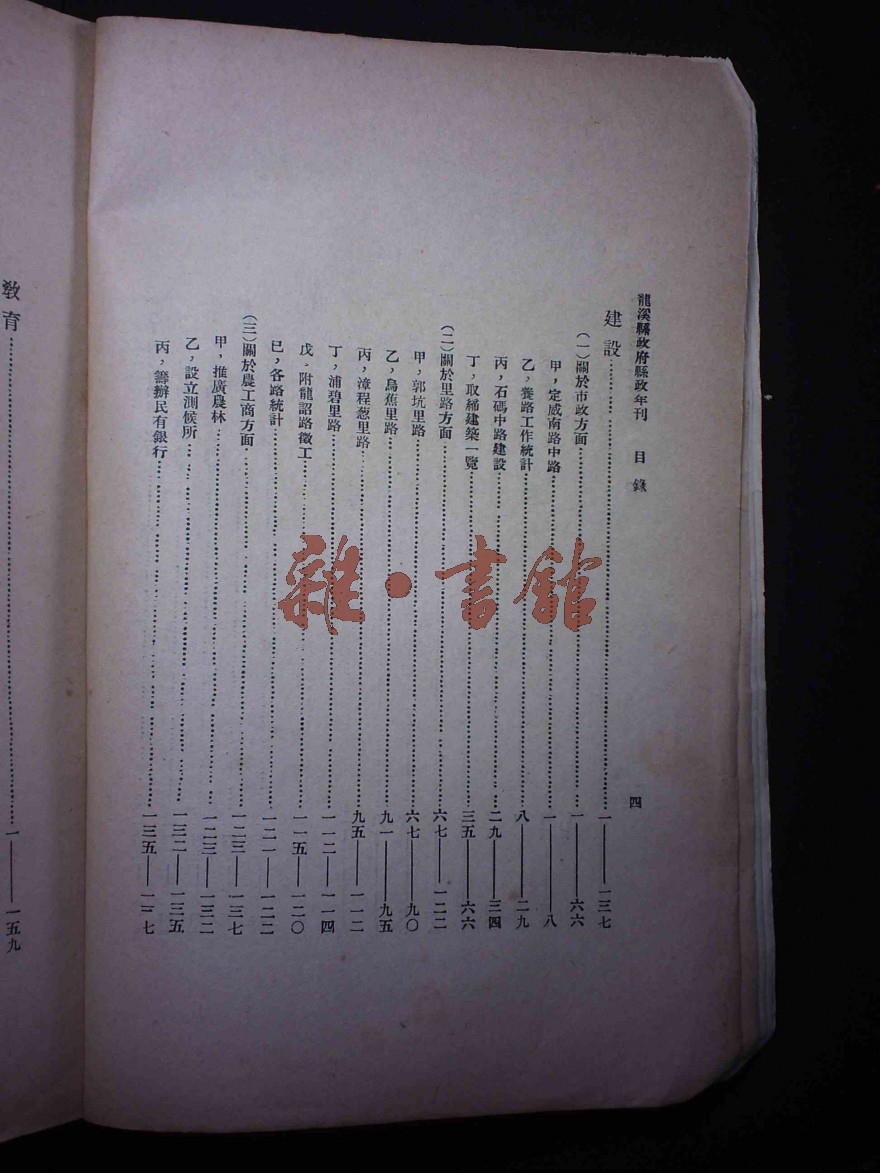 龍溪縣政府縣政年刊 目錄 四
建設……一——一三七
(一)關於市政方面……一——六六
甲，定威南路中路……一——八
乙，養路工作統計……八——二九
丙，石碼中路建設……二九——三四
丁，取締建築一覽……三五——六六
(二)關於里路方面……六七——一二二
甲，郭坑里路……六七——九〇
乙，烏蕉里路……九一——九五
丙，漳程葱里路……九五——一一二
丁，浦碧里路……一一二——一一四
戊，附龍詔路徵工……一一五——一二〇
已，各路統計……一二一——一二二
(三)關於農工商方面……一二三——一三七
甲，推廣農林……一二三——一三二
乙，設立測候所……一三二——一三五
丙，籌辦民有銀行……一三五——一三七
教育……一——一五九
雜·書館